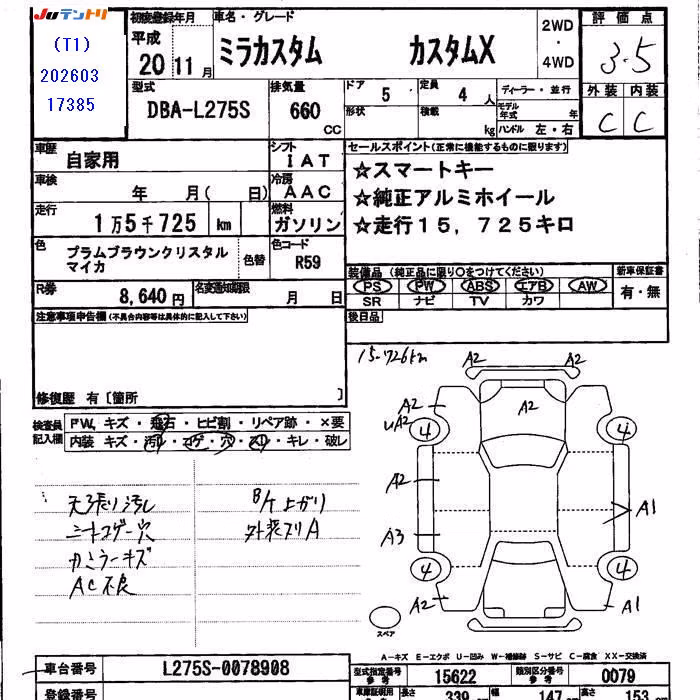 Juテントリ
(T1)
202603
17385
初度登録年月
平成
20 11月
車名・グレード
ミラカスタム カスタムX
2WD
・
4WD
評価点
3.5
外装 内装
C C
型式
DBA-L275S
排気量
660
CC
ドア
5
形状
定員
4 人
積載
kg
ディーラー・並行
モデル年式 年
ハンドル 左・右
車歴
自家用
シフト
IAT
車検
年 月( 日)
冷房
AAC
走行
1万5千725 km
燃料
ガソリン
色
プラムブラウンクリスタル
マイカ
色替
色コード
R59
R券
8,640円
名変通知期限
月 日
セールスポイント(正常に機能するものに限ります)
☆スマートキー
☆純正アルミホイール
☆走行15，725キロ
装備品 (純正品に限り○をつけてください)
PS PW ABS エアB AW
SR ナビ TV カワ
新車保証書
有・無
後日品
注意事項申告欄(不具合内容等は具体的に記入して下さい)
修復歴 有〔箇所 〕
検査員
記入欄
FW. キズ・飛石・ヒビ割・リペア跡・×要
内装 キズ・汚れ・コゲ・穴・スレ・キレ・破レ
天張り汚し
シートコゲ穴
カミラーキズ
AC不良
B/ト上がり
外装スリA
15.726km
A2 A2
A2
A2
A2
4 4
A2
A3
A1
4 4
A2
A1
スペア
A－キズ E－エクボ U－凹み W－補修跡 S－サビ C－腐食 XX－交換済
車台番号
L275S-0078908
登録番号
型式指定番号
参考
15622
類別区分番号
参考
0079
車庫証明用
長さ
339 cm
幅
147 cm
高さ
153 cm